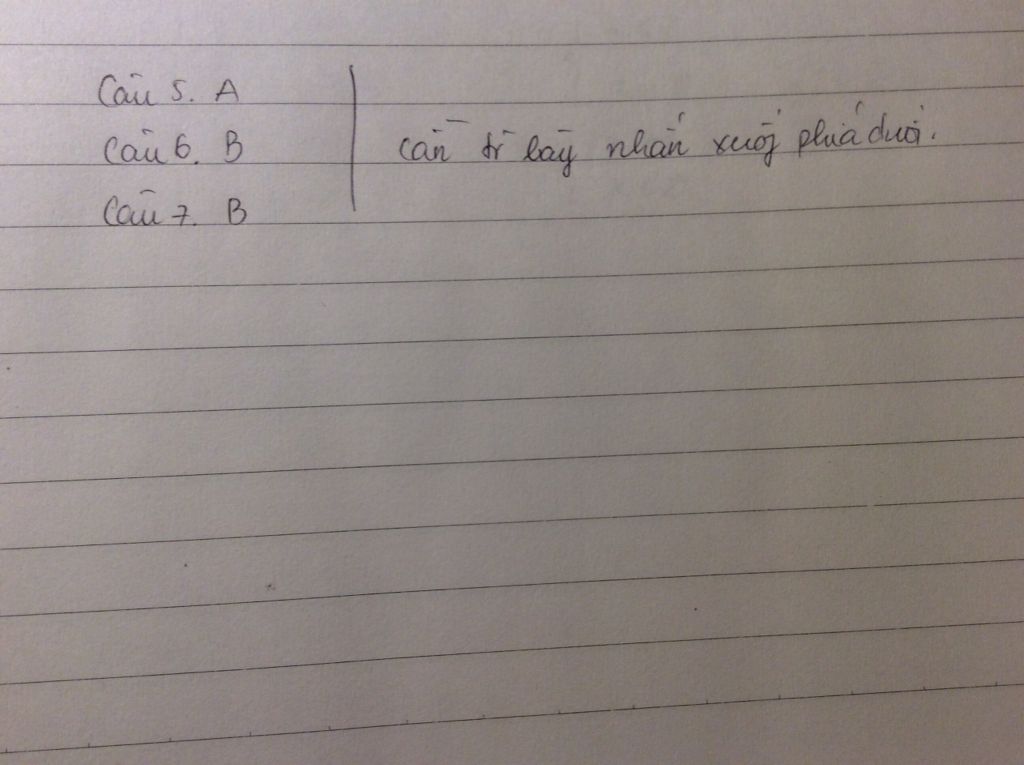 Câu 5. A
Câu 6. B
Câu 7. B
cần trì bày nhấn xuống phía dưới.